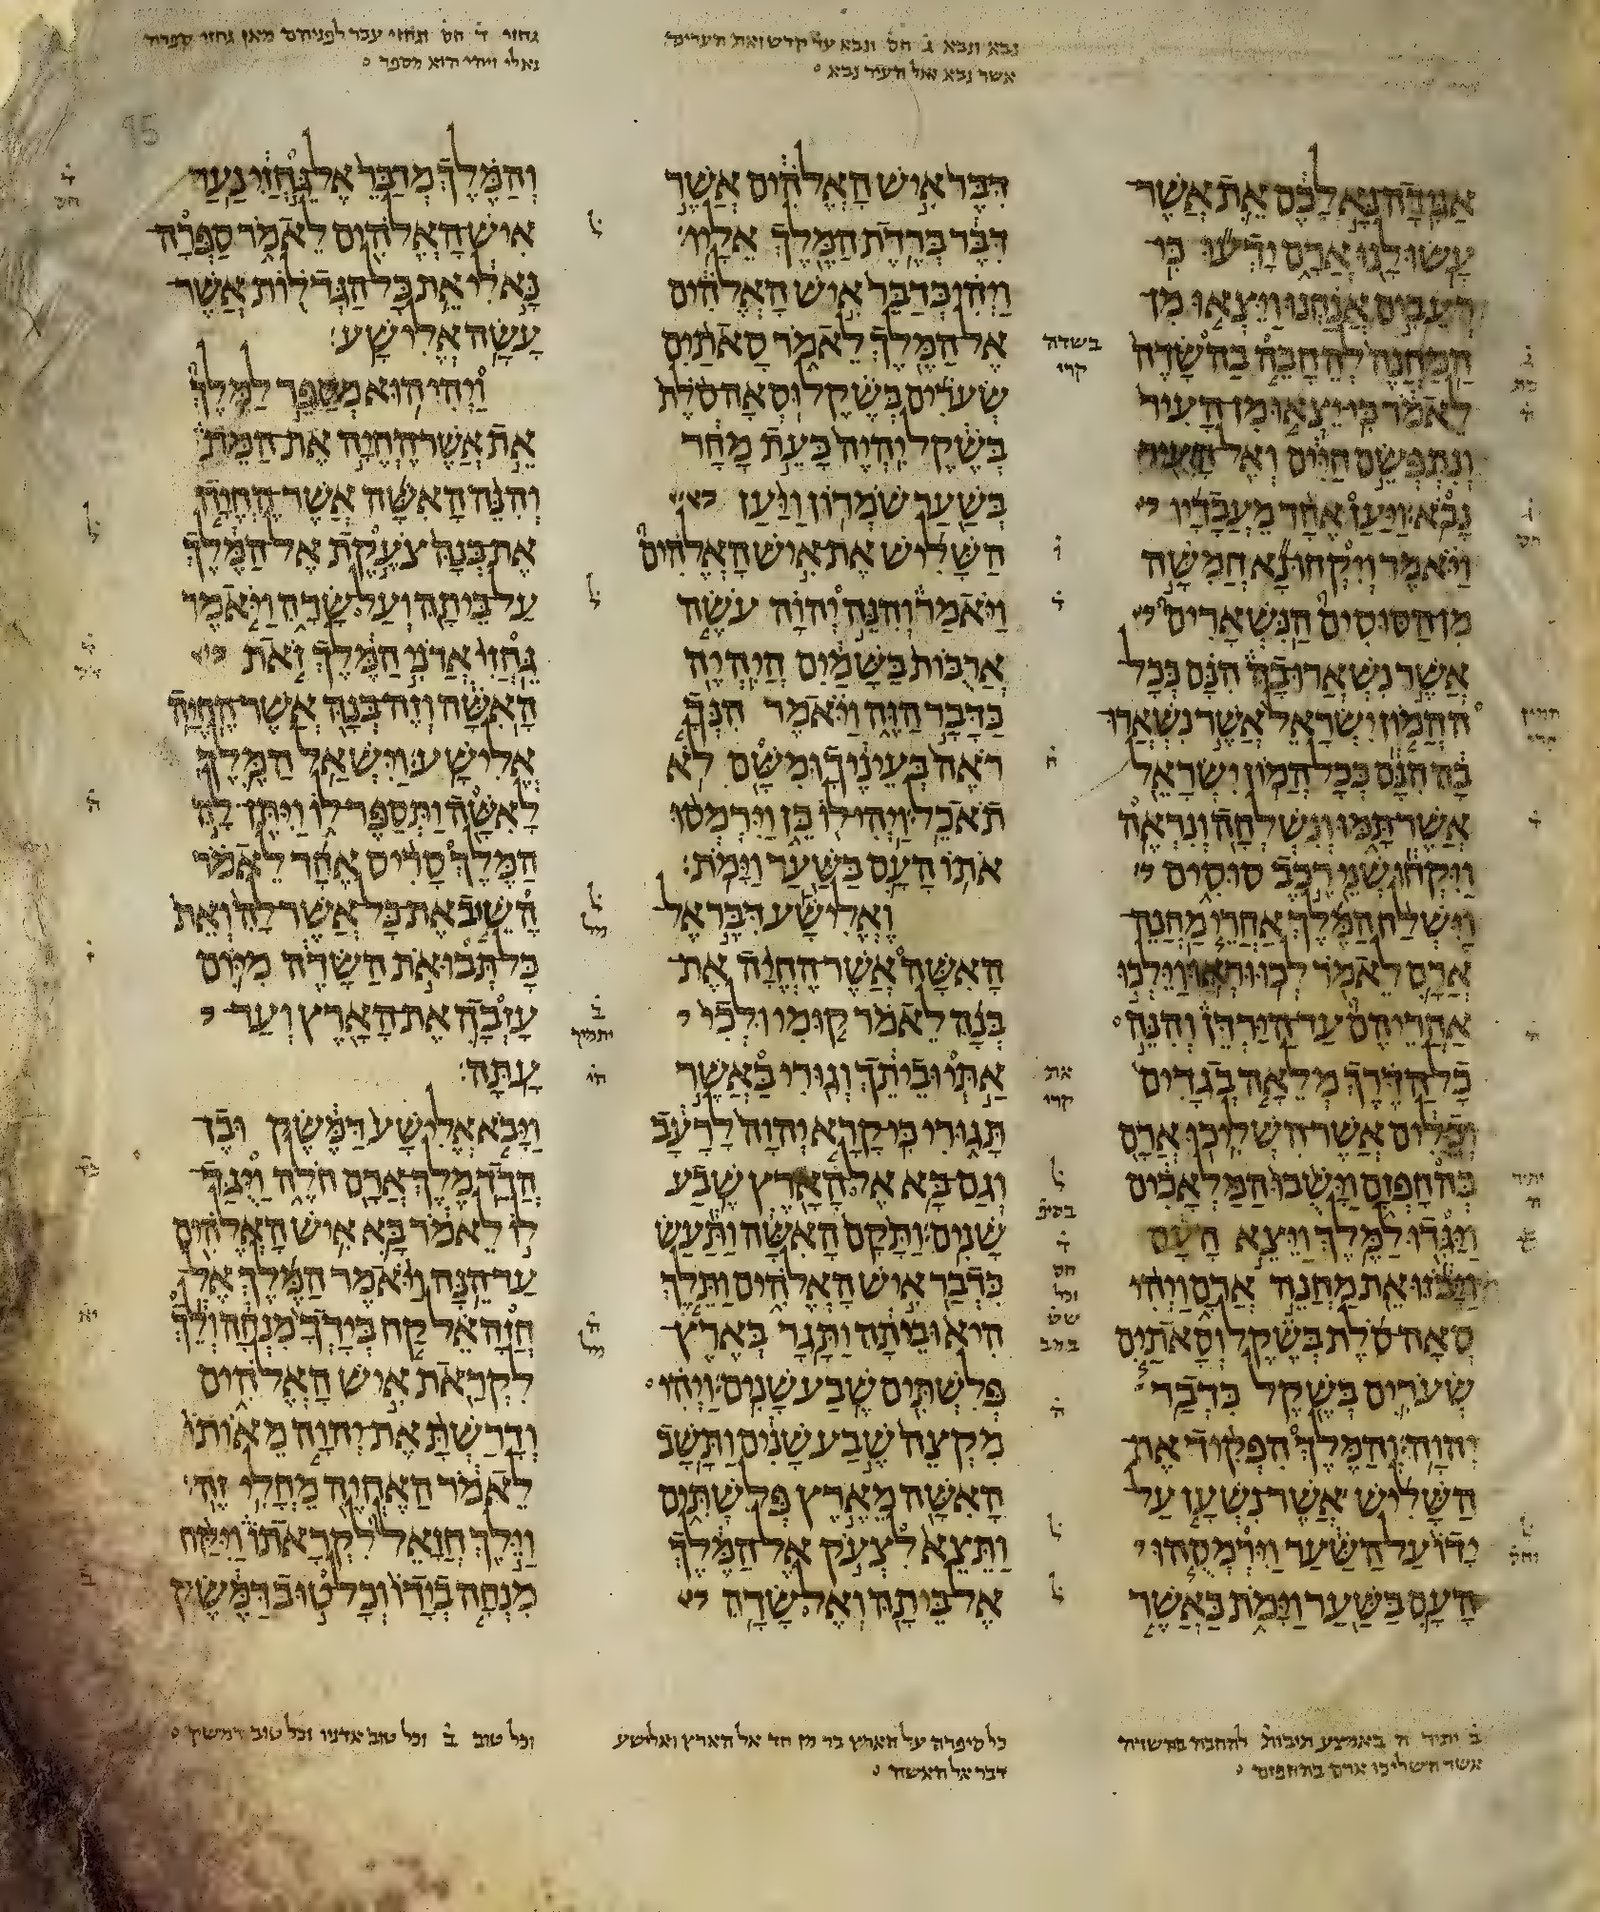 נבא ונבא ג̇ חס̇ ונבא עד קדש ואת הערים
אשר נבא אל העיר נבא
גחזי ד̇ חס̇ וגחזי עבר לפניהם מאן גחזי ספרה
נא לי ויהי הוא מספר
אגידה נא לכם את אשר
עשו לנו ארם ידעו כי
רעבים אנחנו ויצאו מן
המחנה להחבה בהשדה
לאמר כי יצאו מן העיר
ונתפשם חיים ואל העיר
נבא׃ ויען אחד מעבדיו
ויאמר ויקחו נא חמשה
מן הסוסים הנשארים
אשר נשארו בה הנם ככל
ההמון ישראל אשר נשארו
בה הנם ככל המון ישראל
אשר תמו ונשלחה ונראה׃
ויקחו שני רכב סוסים
וישלח המלך אחרי מחנה
ארם לאמר לכו וראו׃ וילכו
אחריהם עד הירדן והנה
כל הדרך מלאה בגדים
וכלים אשר השליכו ארם
בהחפזם וישבו המלאכים
ויגדו למלך׃ ויצא העם
ויבזו את מחנה ארם ויהי
סאה סלת בשקל וסאתים
שערים בשקל כדבר
יהוה׃ והמלך הפקיד את
השליש אשר נשען על
ידו על השער וירמסהו
העם בשער וימת כאשר
בשדה
קרי
דבר איש האלהים אשר
דבר ברדת המלך אליו׃
ויהי כדבר איש האלהים
אל המלך לאמר סאתים
שערים בשקל וסאה סלת
בשקל יהיה כעת מחר
בשער שמרון׃ ויען
השליש את איש האלהים
ויאמר והנה יהוה עשה
ארבות בשמים היהיה
כדבר הזה ויאמר הנך
ראה בעיניך ומשם לא
תאכל׃ ויהי לו כן וירמסו
אתו העם בשער וימת׃
ואלישע דבר אל
האשה אשר החיה את
בנה לאמר קומי ולכי
אתי וביתך וגורי באשר
תגורי כי קרא יהוה לרעב
וגם בא אל הארץ שבע
שנים׃ ותקם האשה ותעש
כדבר איש האלהים ותלך
היא וביתה ותגר בארץ
פלשתים שבע שנים׃ ויהי
מקצה שבע שנים ותשב
האשה מארץ פלשתים
ותצא לצעק אל המלך
אל ביתה ואל שדה׃
את
קרי
והמלך מדבר אל גחזי נער
איש האלהים לאמר ספרה
נא לי את כל הגדלות אשר
עשה אלישע׃
ויהי הוא מספר למלך
את אשר החיה את המת
והנה האשה אשר החיה
את בנה צעקת אל המלך
על ביתה ועל שדה ויאמר
גחזי אדני המלך זאת
האשה וזה בנה אשר החיה
אלישע׃ וישאל המלך
לאשה ותספר לו ויתן לה
המלך סריס אחד לאמר
השיב את כל אשר לה ואת
כל תבואת השדה מיום
עזבה את הארץ ועד
עתה׃
ויבא אלישע דמשק ובן
הדד מלך ארם חלה ויגד
לו לאמר בא איש האלהים
עד הנה׃ ויאמר המלך אל
חזהאל קח בידך מנחה ולך
לקראת איש האלהים
ודרשת את יהוה מאותו
לאמר האחיה מחלי זה׃
וילך חזאל לקראתו ויקח
מנחה בידו וכל טוב דמשק
ב̇ יתיר ה באמצע תיבות̇ להחבה בהשדה
אשר השליכו ארם בהחפזם
כל סיפרה על הארץ בר מן חד אל הארץ ואלישע
דבר אל האשה
וכל טוב ב̇ וכל טוב אדניו וכל טוב דמשק